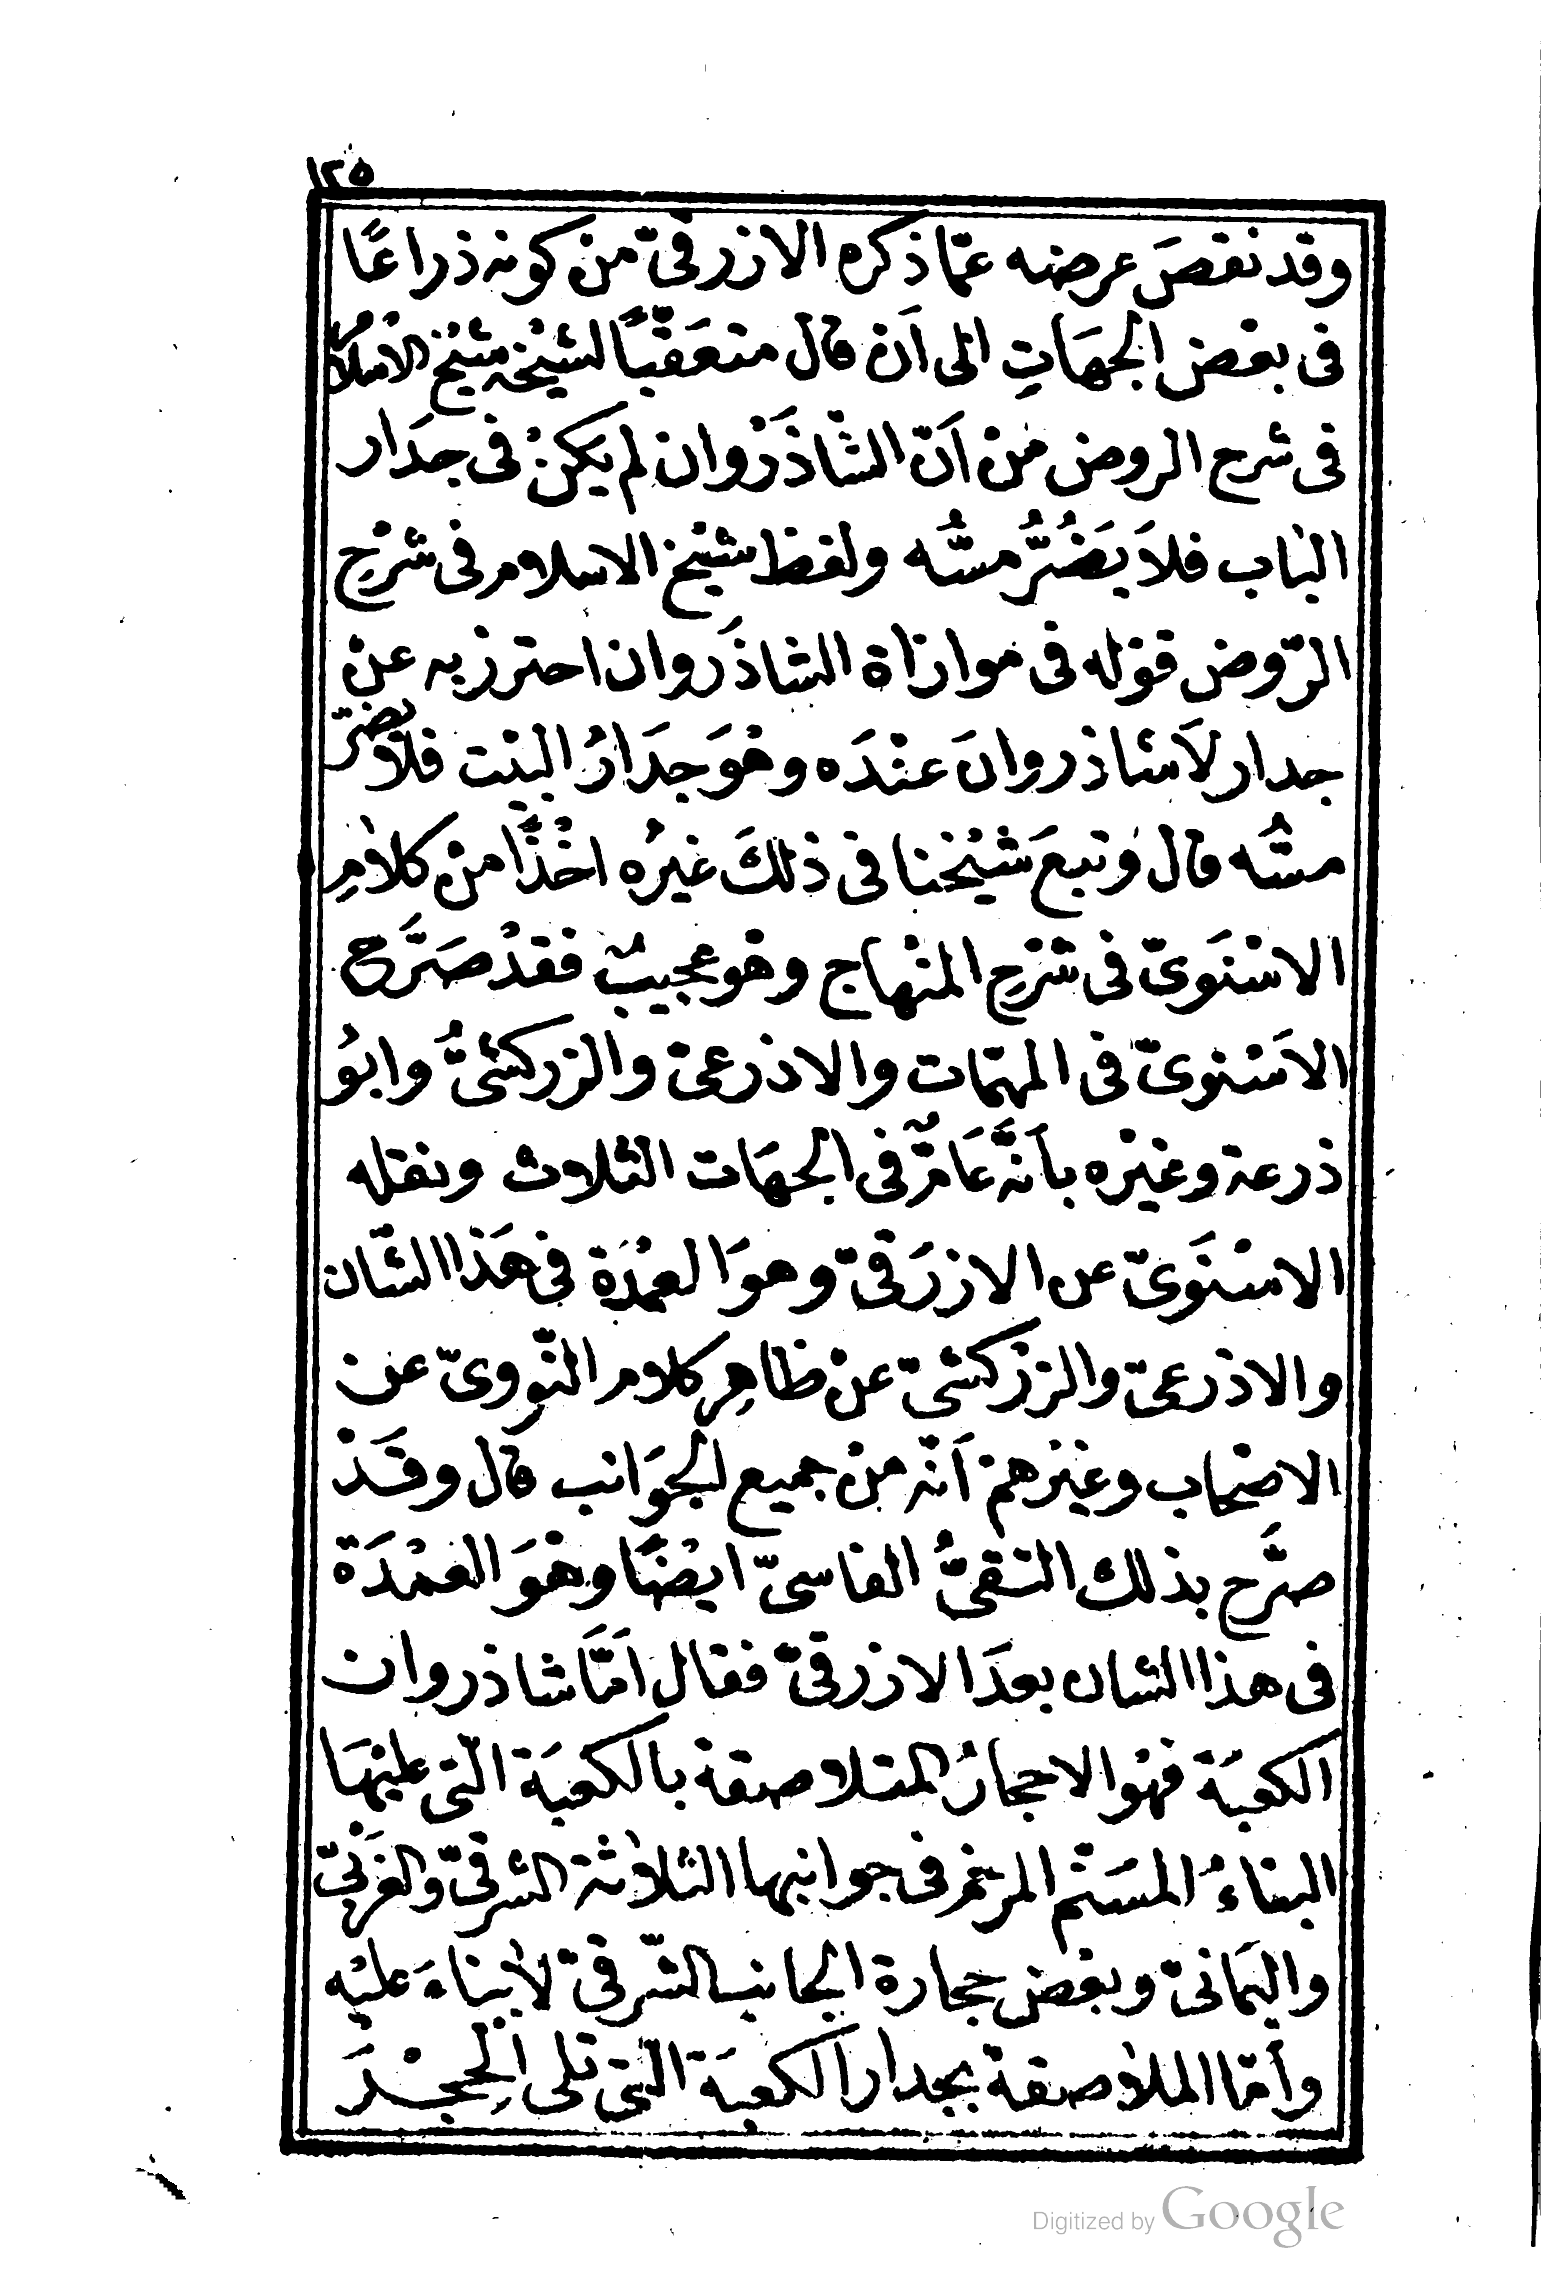 ١٢٥
وقد نقصَ عرضه عمّا ذكره الازرقىّ منْ كونه ذراعًا
فى بعْض الجهَاتِ الى اَن قال متعَقّبًا لشيْخه شيْخ الاسْلام
فى شرح الروض منْ اَنّ الشّاذَرْوان لم يكنْ فى جدَار
البَاب فلاَ يَضُرُّ مسُّه ولفظ شيْخ الاسلام فى شرْحِ
الرّوض قوْله فى موازاة الشاذَروان احترز به عنْ
جدار لاَ شاذروانَ عنْدَه وهْوَ جدَارُ البيْت فلاَ يضرّ
مسُّه قال وَتبعَ شيْخنا فى ذلكَ غيرُه اخْذًا منْ كلاَمِ
الاسْنَوىّ فى شرْحِ المنْهاج وهْو عجيبٌ فقدْ صَرَّح
الاَسْنوىّ فى المهمّات والاذرعىّ والزركشىُّ وابوُ
ذرعة وغيْره بأنَّه عَامٌّ فى الجهَات الثلاث ونقله
الاسْنَوىّ عن الازرَقىّ وهوَ العمْدَة فى هَذا الشّان
والاذرعىّ والزرْكشىّ عنْ ظاهِر كلام النّووىّ عن
الاصْحاب وغيْرهمْ اَنّه منْ جميع الجوَانب قال وقَدْ
صرَّح بذلك التقىُّ الفاسىّ ايضًا وهْوَ العمْدَة
فى هذا الشان بعدَ الازرقىّ فقال اَمَّا شاذروان
الكعبَة فهْو الاحجارُ المتلاصقة بالكعبَة التى عليْهَا
البناءُ المسَنّم المرخم فى جوانبها الثلاثة الشرقىّ والغَرْبىّ
واليَمانىّ وبعْض حجارة الجانب الشّرقىّ لاَ بناءَ عليْه
وأمّا الملاصقة بجدار الكعبَة التى تلى الحِجْرَ
Digitized by Google